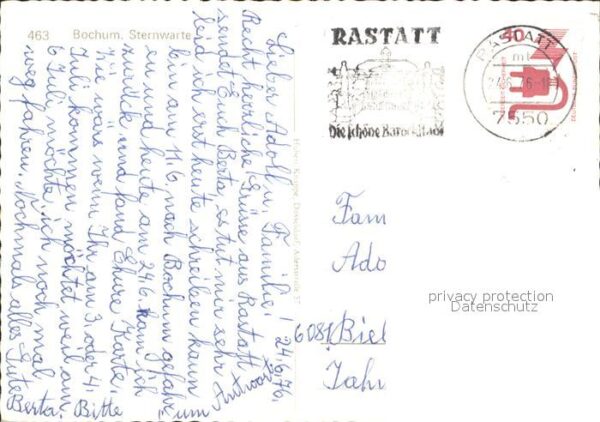 463 Bochum. Sternwarte
Lieber Adolf u. Familie! 24.6.76.
Recht herrliche Grüsse aus Rastatt
sendet Euch Berta, es tut mir sehr
leid ich erst heute schreiben kann
bin am 11.6. nach Bochum gefahr
en und heute am 24.6. kam ich
zurück und fand Eure Karte.
wie wärs wenn Ihr am 3. oder 4.
Juli kommen möchtet weil am
6 Juli möchte ich noch mal
weg fahren. Nochmals alles Gute
Berta. Bitte um Antwort
RASTATT
Die schöne Barockstadt
RASTATT
24.6.76
7550
40
Fam
Ado
6081 Biel
Jahr
privacy protection
Datenschutz